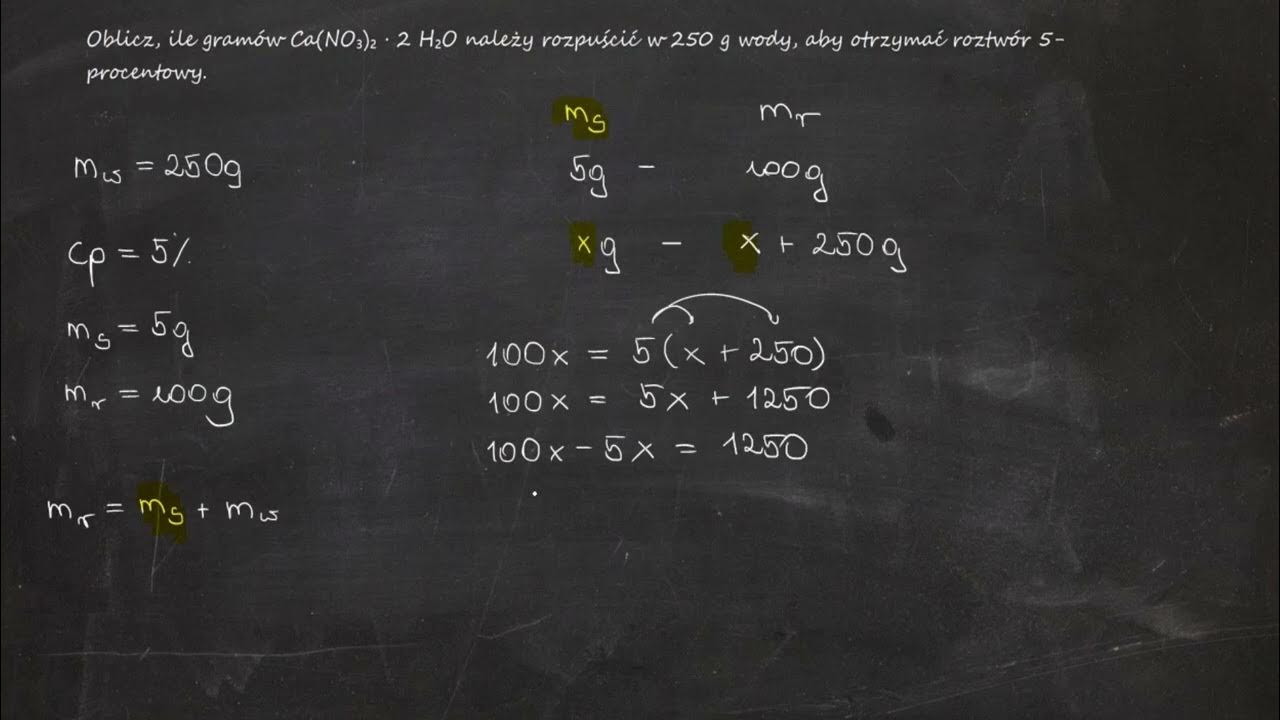 Oblicz, ile gramów Ca(NO₃)₂ · 2 H₂O należy rozpuścić w 250 g wody, aby otrzymać roztwór 5-
procentowy.
m_w = 250g
cp = 5%
m_s = 5g
m_r = 100g
m_r = m_s + m_w
m_s m_r
5g - 100g
x g - x + 250g
100x = 5(x + 250)
100x = 5x + 1250
100x - 5x = 1250